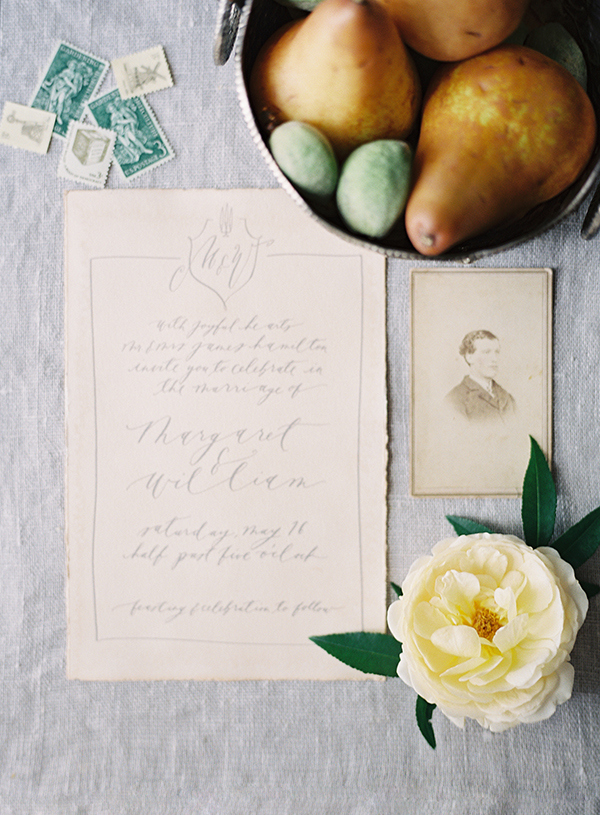 M&W
with joyful hearts
Mr & Mrs James Hamilton
invite you to celebrate in
the marriage of
Margaret
&
William
saturday, may 16
half past five o'clock
feasting & celebration to follow
3¢
U.S. POSTAGE